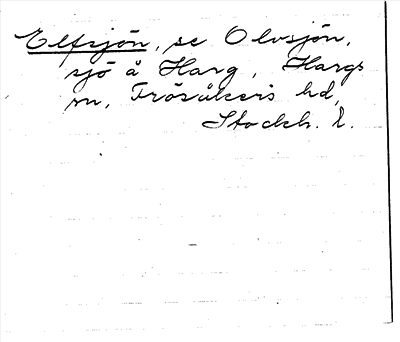 Elfsjön, se Olvsjön,
sjö å Harg, Hargs
sn, Frösåkers hd,
Stockh. l.